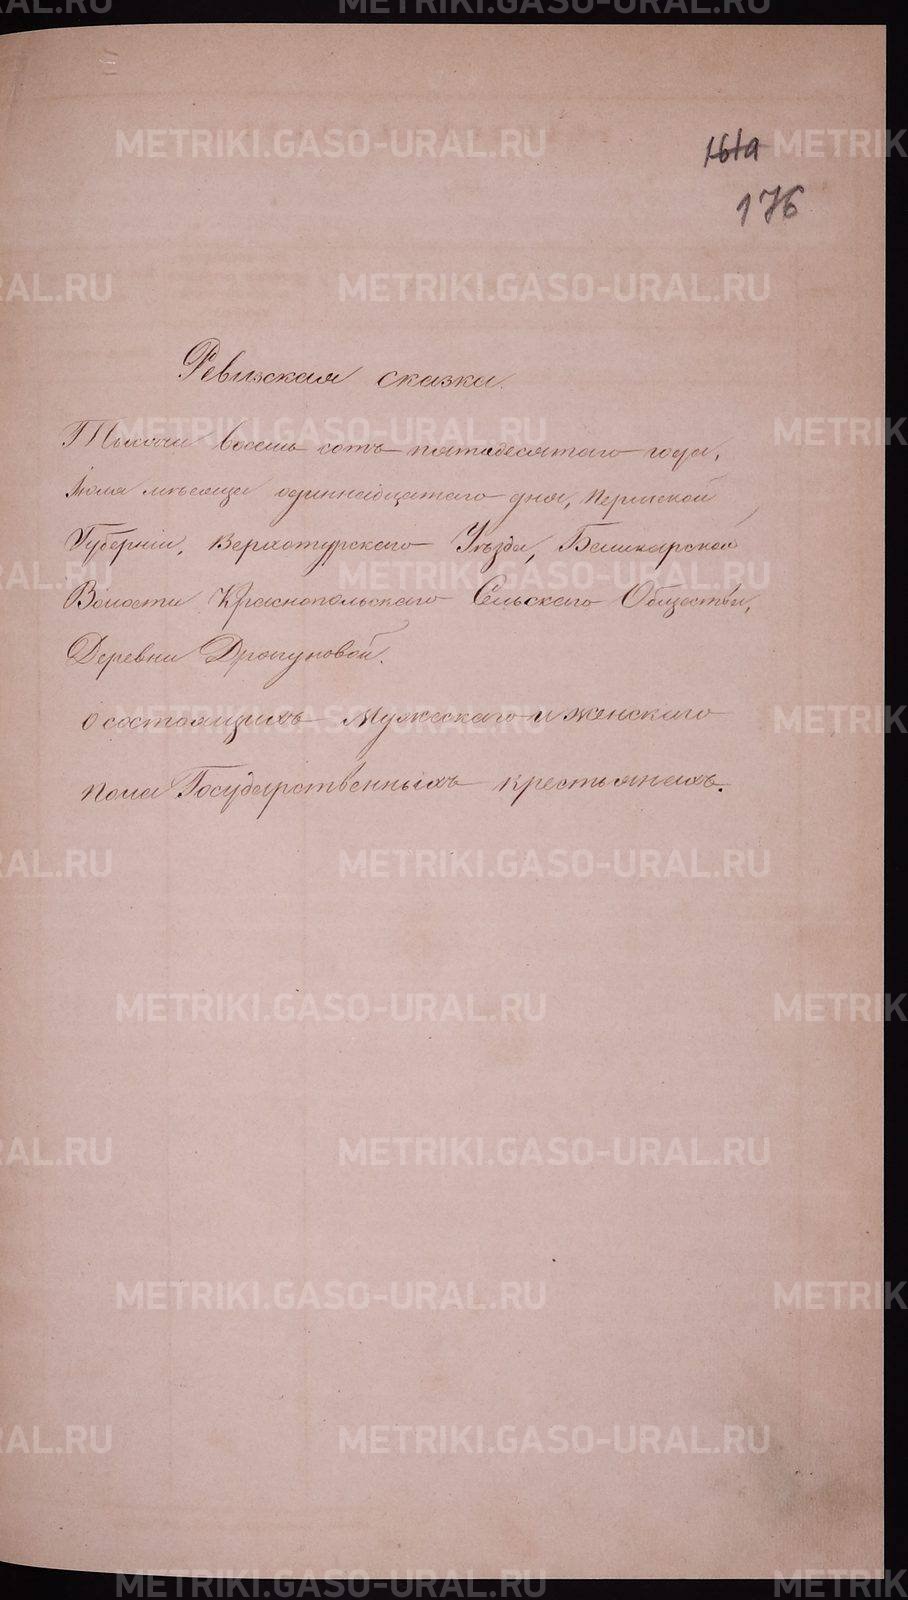 161а
176
Ревизская сказка.
Тысяча восемь сотъ пятидесятаго года,
Іюля мѣсяца одиннадцатаго дня, Пермской
Губерніи, Верхотурскаго Уѣзда, Башкарской
Волости Краснопольскаго Сельскаго Общества,
Деревни Драгуновой.
о состоящихъ Мужескаго и женскаго
пола Государственныхъ крестьянахъ.
METRIKI.GASO-URAL.RU